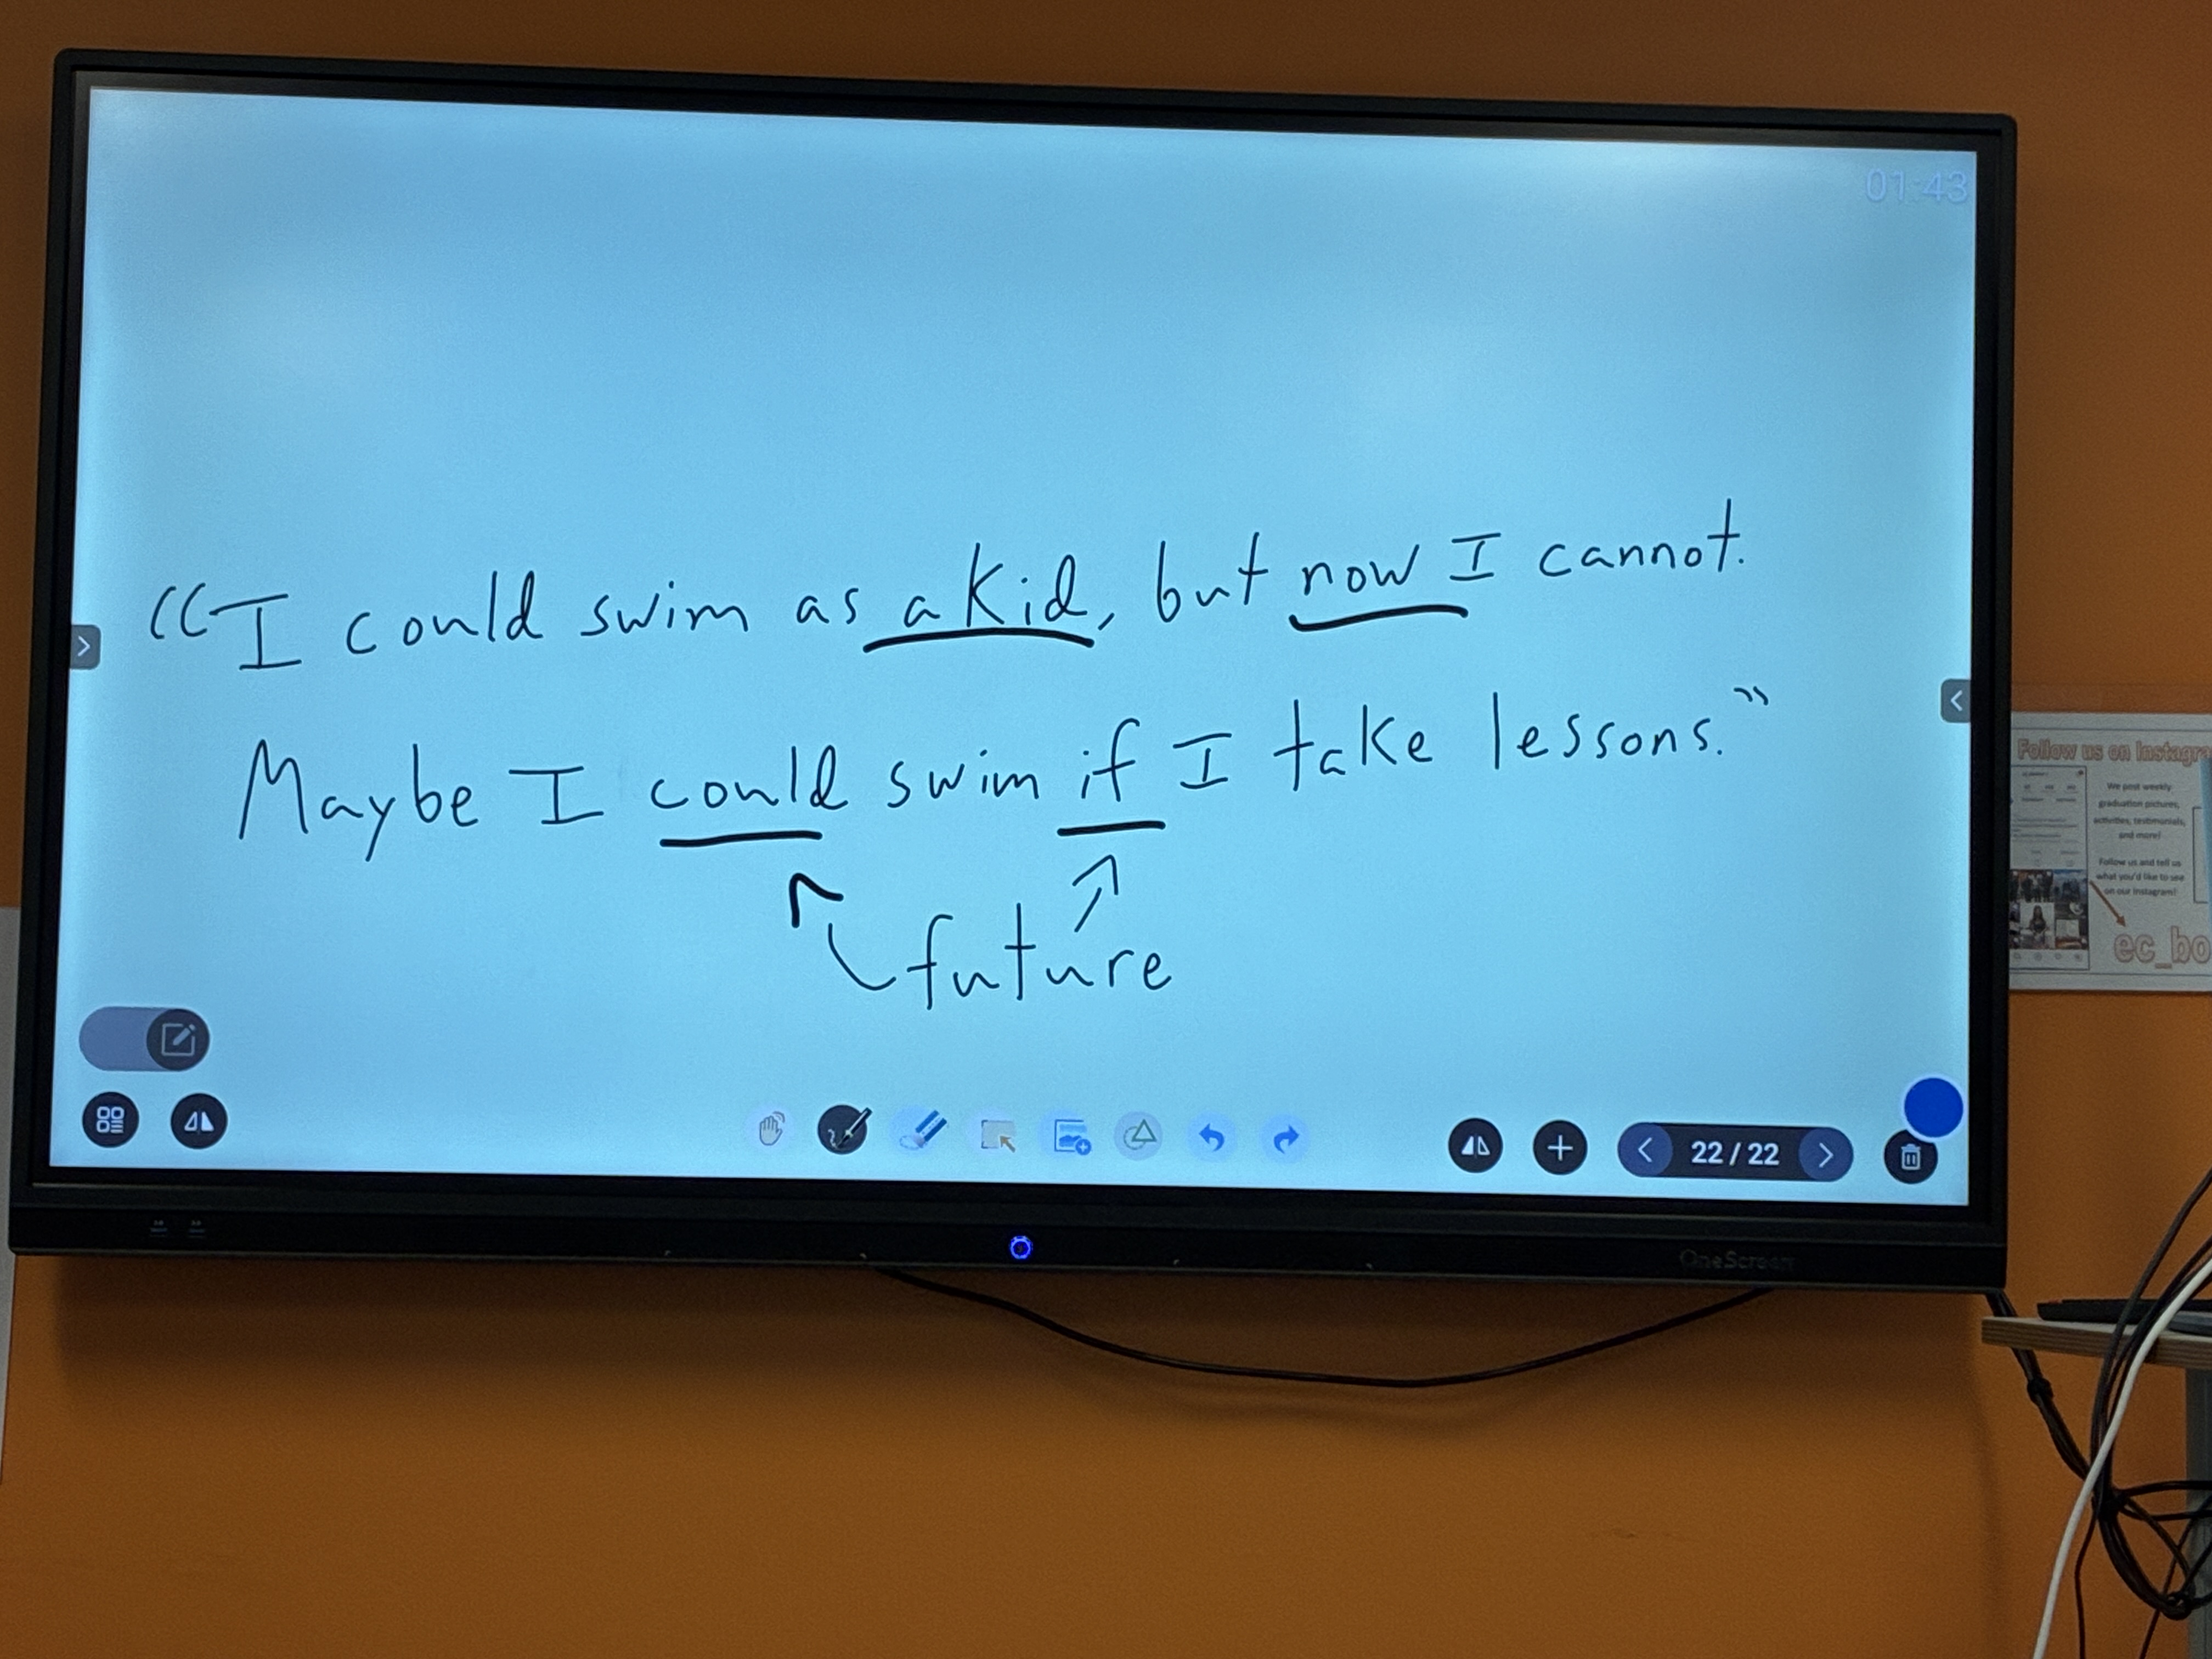 01:43
“I could swim as a kid, but now I cannot.
Maybe I could swim if I take lessons.”
future
22 / 22
OneScreen
Follow us on Instagr
We post weekly
graduation pictures,
activities, testimonials,
and more!
Follow us and tell us
what you'd like to see
on our Instagram!
ec_bo